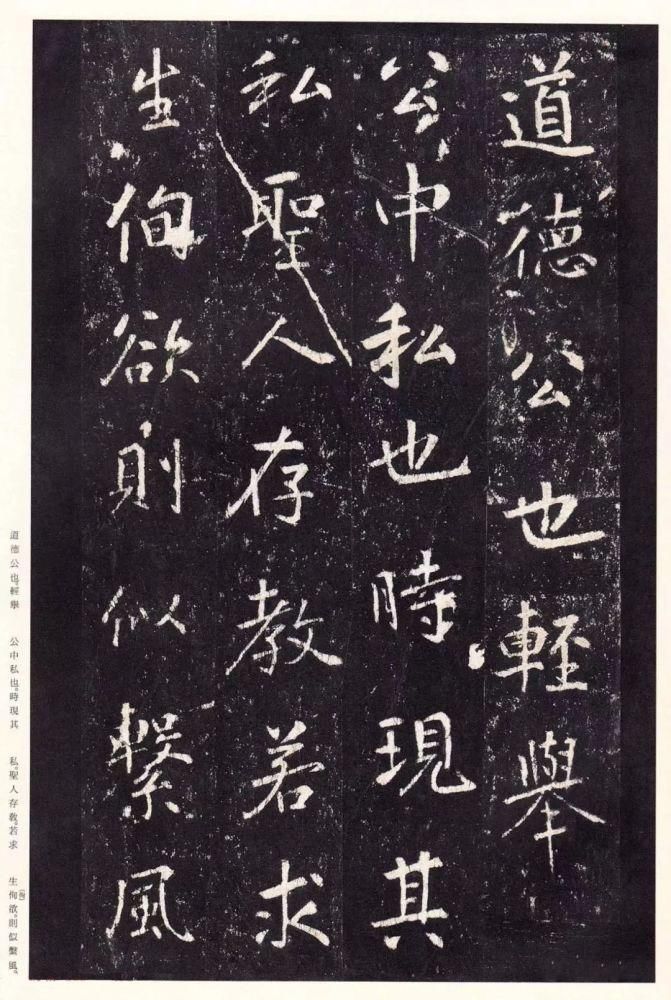 道德公也輕舉
公中私也時現其
私聖人存教若求
生徇欲則似繫風
道德公也。輕舉　公中私也。時現其　私。聖人存教。若求　生徇欲。則似繫風。